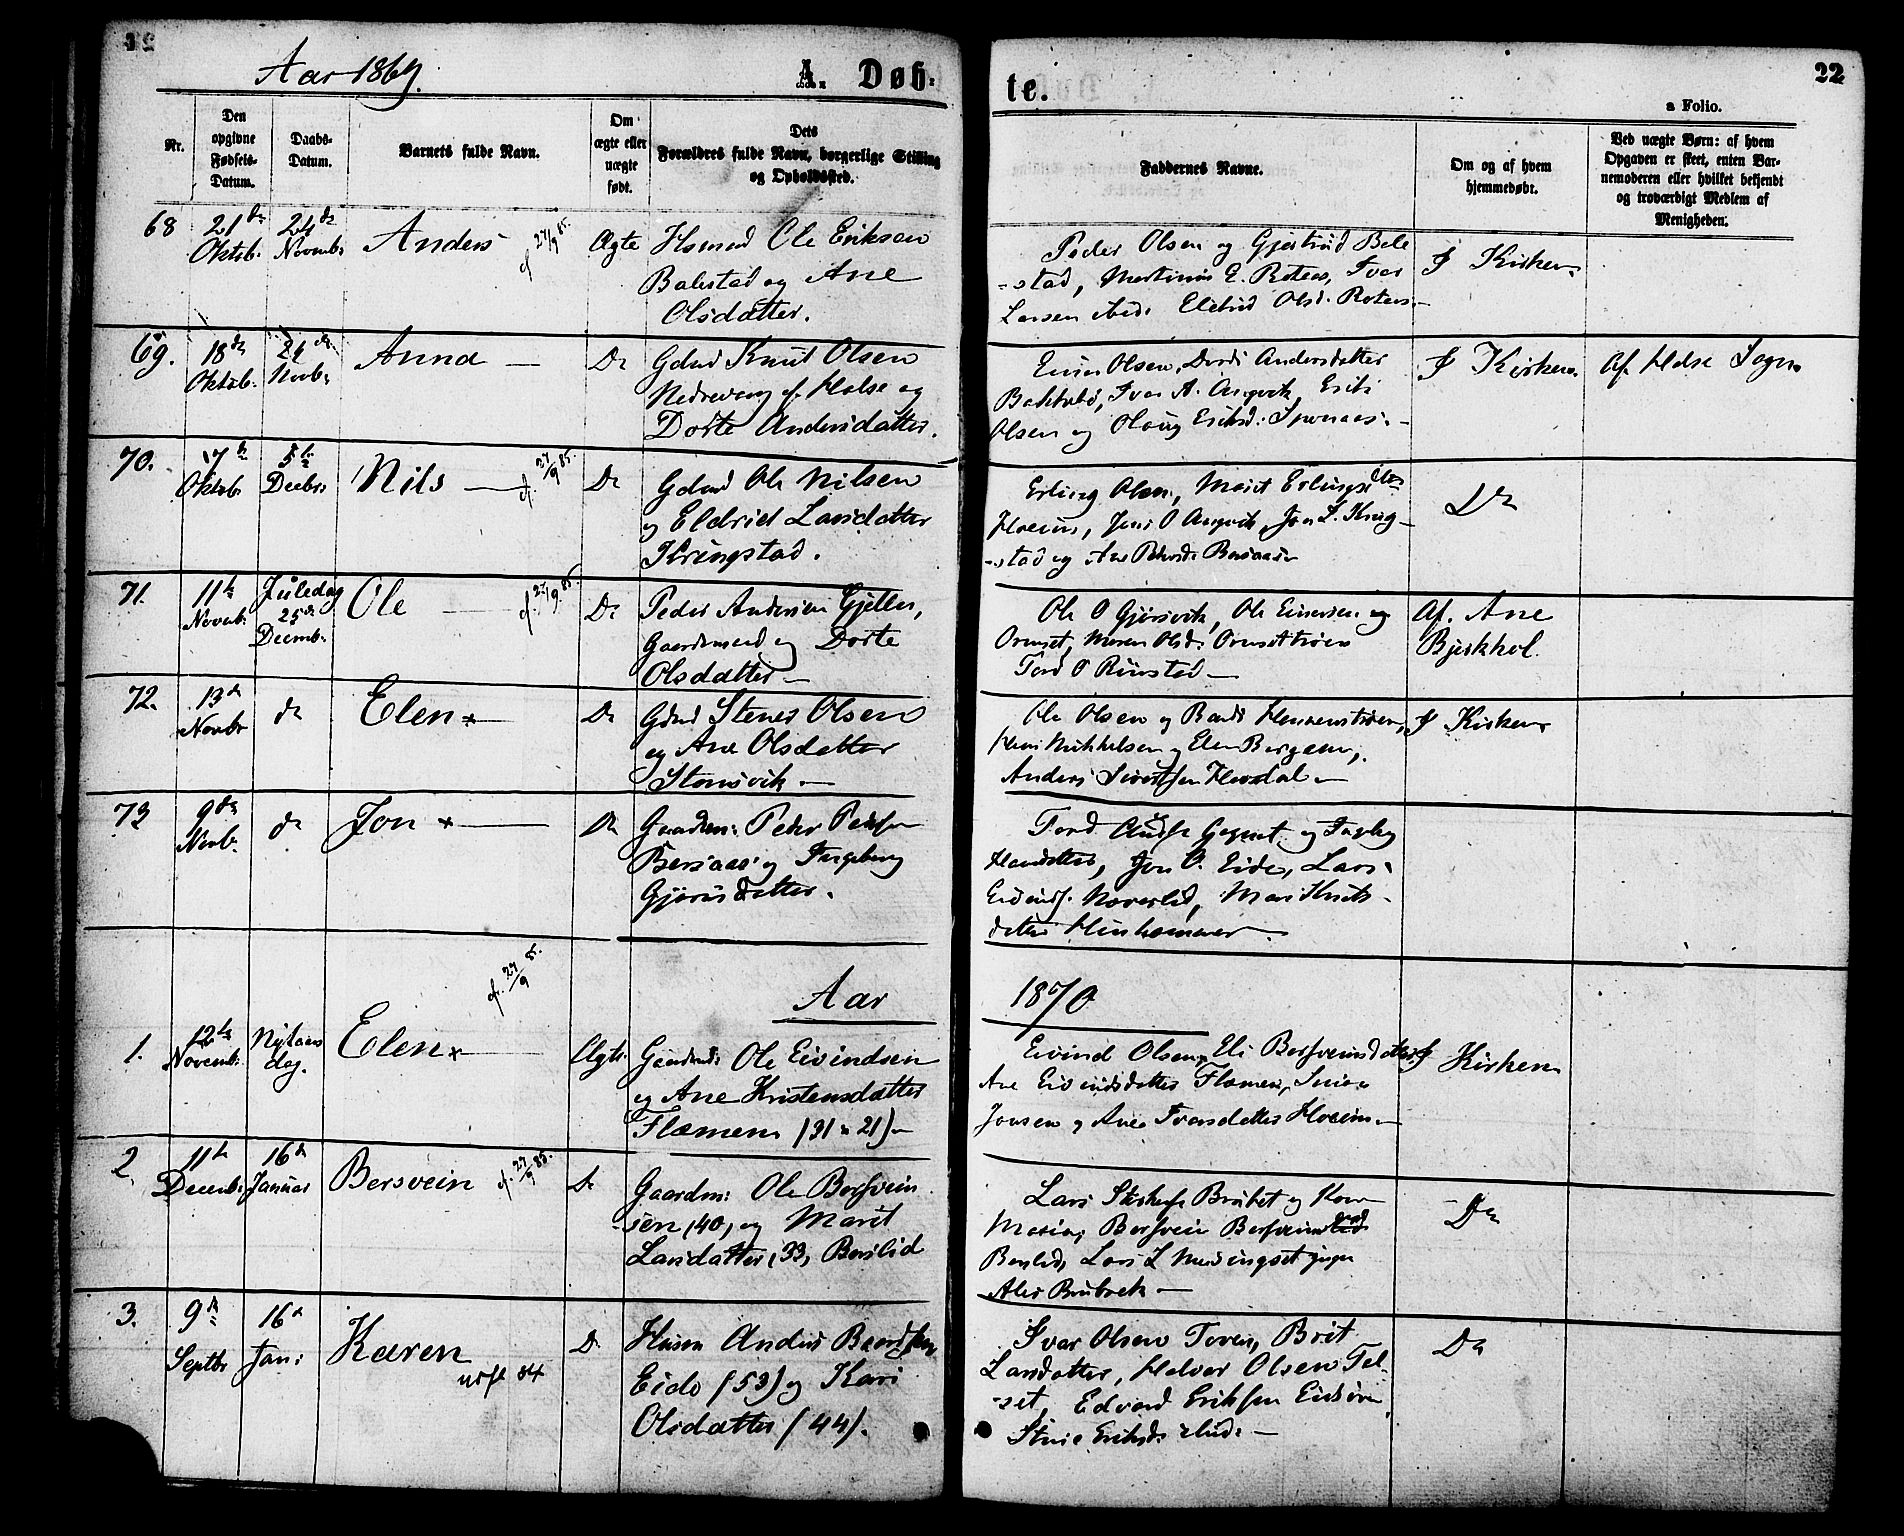 Aar 1869.
A. Døb-
te.
22
a Folio.
Nr.
Den opgivne Fødsels-Datum.
Daabs-Datum.
Barnets fulde Navn.
Om ægte eller uægte født.
Dets Forældres fulde Navn, borgerlige Stilling og Opholdssted.
Faddernes Navne.
Om og af hvem hjemmedøbt.
Ved uægte Børn: af hvem Opgaven er skeet, enten Barnemoderen eller hvilket bekjendt og troværdigt Medlem af Menigheden.
68 21de Oktob. 24de Novemb. Anders 27/9 85. Ægte Husmd Ole Eriksen
Balestad og Ane
Olsdatter.
Peder Olsen og Gjertrud Bale
-stad, Martinus E. Roteas, Ivar
Larsen Eldrid Olsd. Roteas
I Kirken
69. 18de Oktob. 24de Novb. Anna — Do Gdmd Knut Olsen
Nedrevaag af Halse og
Dorte Andersdatter.
Einer Olsen, Dordi Andersdatter
Bakkebø, Ivar A. Angvik, Erik
Olsen og Olaug Eriksd.
I Kirken. Af Halse Sogn
70. 7de Oktob. 5te Decbr. Nils — 27/9 85. Do Gdmd Ole Nilsen
og Eldrid Larsdatter
Kringstad.
Erling Olsen, Marit Erlingsd
Hoem, Jens O Angvik, Jon L. Kring-
-stad og Ane Bersaas
Do
71. 11te Novb. Juledag 25de Decemb. Ole — 27/9 85. Do Peder Andersen Gjellen,
Gaardmand og Dorte
Olsdatter —
Ole O Gjørsvik, Ole Einersen og
Ormset, Maren Olsd. Ormsettrøen
Tord O Rimstad —
Af. Ane
Bjerkhol.
72. 13de Novbr do Elen * — Do Gdmd Stener Olsen
og Ane Olsdatter
Stensvik —
Ole Olsen og Hennenstrøen,
Mikkelsen og Elen Bergem,
Anders Sivertsen Heosdal —
I Kirken
73 9de Novb. do Jon * — Do Gaardm. Peder Pedersen
Bersaas og Ingeborg
Gjørusdatter.
Tord Gagnat og Ingeborg
Hansdatter, Jon O. Eide, Lars
Eivinds. Naverlid, Mari Knuts-
datter Hinhammer.
Aar
1870
1. 12te Novemb. Nytaarsdag. Elen * — 27/9 85. Ægte Gaardmd. Ole Eivindsen
og Ane Kristensdatter
Flæmem (31 - 21) —
Eivind Olsen, Eli Bersveinsdatter,
Ane Eivindsdatter Flæmem,
Jonsen og Ane Ivarsdatter Hoeem —
I Kirken
2. 11te Decemb. 16de Januar Bersvein 27/9 85. Do Gaardm: Ole Bersvein
sen, 40, og Marit
Larsdatter, 33, Berslid
Lars Brubet og Kone
Maria, Bersvein Bersveinsen
Berslid, Lars L Meisingset
Brubæk —
Do
3. 9de Septbr 16de Jan: Karen 84 Do Husm Anders Baardsen
Eide (53) og Kari
Olsdatter (44).
Ivar Olsen Toven, Brit
Larsdatter, Halvor Olsen Tel-
-set, Edvard Eriksen Eidsøre,
Eriksd. —
Do